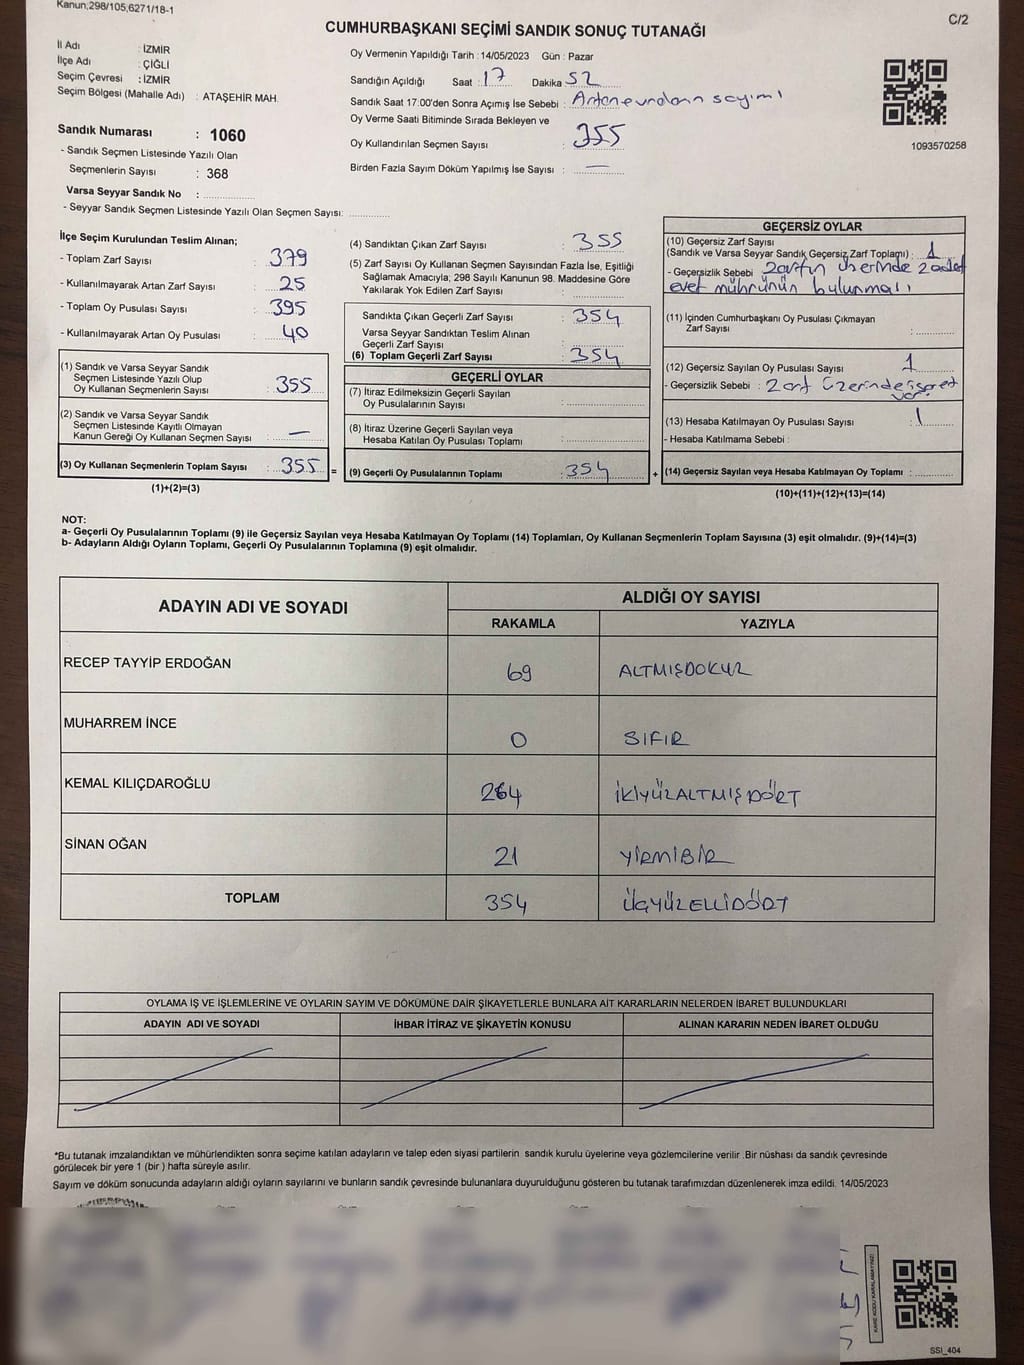 Kanun;298/105;6271/18-1
C/2
CUMHURBAŞKANI SEÇİMİ SANDIK SONUÇ TUTANAĞI
İl Adı : İZMİR
İlçe Adı : ÇİĞLİ
Seçim Çevresi : İZMİR
Seçim Bölgesi (Mahalle Adı) : ATAŞEHİR MAH.
Sandık Numarası : 1060
- Sandık Seçmen Listesinde Yazılı Olan
Seçmenlerin Sayısı : 368
Varsa Seyyar Sandık No :
- Seyyar Sandık Seçmen Listesinde Yazılı Olan Seçmen Sayısı:
Oy Vermenin Yapıldığı Tarih : 14/05/2023 Gün : Pazar
Sandığın Açıldığı Saat : 17 Dakika : 52
Sandık Saat 17:00'den Sonra Açımış İse Sebebi : Artan evrakların sayımı
Oy Verme Saati Bitiminde Sırada Bekleyen ve
Oy Kullandırılan Seçmen Sayısı : 355
Birden Fazla Sayım Döküm Yapılmış İse Sayısı : —
1093570258
İlçe Seçim Kurulundan Teslim Alınan;
- Toplam Zarf Sayısı : 379
- Kullanılmayarak Artan Zarf Sayısı : 25
- Toplam Oy Pusulası Sayısı : 395
- Kullanılmayarak Artan Oy Pusulası : 40
(1) Sandık ve Varsa Seyyar Sandık
Seçmen Listesinde Yazılı Olup
Oy Kullanan Seçmenlerin Sayısı : 355
(2) Sandık ve Varsa Seyyar Sandık
Seçmen Listesinde Kayıtlı Olmayan
Kanun Gereği Oy Kullanan Seçmen Sayısı : —
(3) Oy Kullanan Seçmenlerin Toplam Sayısı : 355 =
(1)+(2)=(3)
(4) Sandıktan Çıkan Zarf Sayısı : 355
(5) Zarf Sayısı Oy Kullanan Seçmen Sayısından Fazla İse, Eşitliği
Sağlamak Amacıyla; 298 Sayılı Kanunun 98. Maddesine Göre
Yakılarak Yok Edilen Zarf Sayısı :
Sandıkta Çıkan Geçerli Zarf Sayısı : 354
Varsa Seyyar Sandıktan Teslim Alınan
Geçerli Zarf Sayısı :
(6) Toplam Geçerli Zarf Sayısı 354
GEÇERLİ OYLAR
(7) İtiraz Edilmeksizin Geçerli Sayılan
Oy Pusulalarının Sayısı :
(8) İtiraz Üzerine Geçerli Sayılan veya
Hesaba Katılan Oy Pusulası Toplamı :
(9) Geçerli Oy Pusulalarının Toplamı : 354 +
GEÇERSİZ OYLAR
(10) Geçersiz Zarf Sayısı
(Sandık ve Varsa Seyyar Sandık Geçersiz Zarf Toplamı) : 1
- Geçersizlik Sebebi : Zarfın üzerinde 2 adet
evet mührünün bulunması
(11) İçinden Cumhurbaşkanı Oy Pusulası Çıkmayan
Zarf Sayısı :
(12) Geçersiz Sayılan Oy Pusulası Sayısı : 1
- Geçersizlik Sebebi : Zarf üzerinde işaret
var.
(13) Hesaba Katılmayan Oy Pusulası Sayısı : 1
- Hesaba Katılmama Sebebi :
(14) Geçersiz Sayılan veya Hesaba Katılmayan Oy Toplamı :
(10)+(11)+(12)+(13)=(14)
NOT:
a- Geçerli Oy Pusulalarının Toplamı (9) ile Geçersiz Sayılan veya Hesaba Katılmayan Oy Toplamı (14) Toplamları, Oy Kullanan Seçmenlerin Toplam Sayısına (3) eşit olmalıdır. (9)+(14)=(3)
b- Adayların Aldığı Oyların Toplamı, Geçerli Oy Pusulalarının Toplamına (9) eşit olmalıdır.
ADAYIN ADI VE SOYADI
ALDIĞI OY SAYISI
RAKAMLA YAZIYLA
RECEP TAYYİP ERDOĞAN 69 ALTMIŞDOKUZ
MUHARREM İNCE 0 SIFIR
KEMAL KILIÇDAROĞLU 264 İKİYÜZALTMIŞDÖRT
SİNAN OĞAN 21 YİRMİBİR
TOPLAM 354 ÜÇYÜZELLİDÖRT
OYLAMA İŞ VE İŞLEMLERİNE VE OYLARIN SAYIM VE DÖKÜMÜNE DAİR ŞİKAYETLERLE BUNLARA AİT KARARLARIN NELERDEN İBARET BULUNDUKLARI
ADAYIN ADI VE SOYADI İHBAR İTİRAZ VE ŞİKAYETİN KONUSU ALINAN KARARIN NEDEN İBARET OLDUĞU
*Bu tutanak imzalandıktan ve mühürlendikten sonra seçime katılan adayların ve talep eden siyasi partilerin sandık kurulu üyelerine veya gözlemcilerine verilir .Bir nüshası da sandık çevresinde
görülecek bir yere 1 (bir ) hafta süreyle asılır.
Sayım ve döküm sonucunda adayların aldığı oyların sayılarını ve bunların sandık çevresinde bulunanlara duyurulduğunu gösteren bu tutanak tarafımızdan düzenlenerek imza edildi. 14/05/2023
KARE KODU KARALAMAYINIZ!
SSI_404